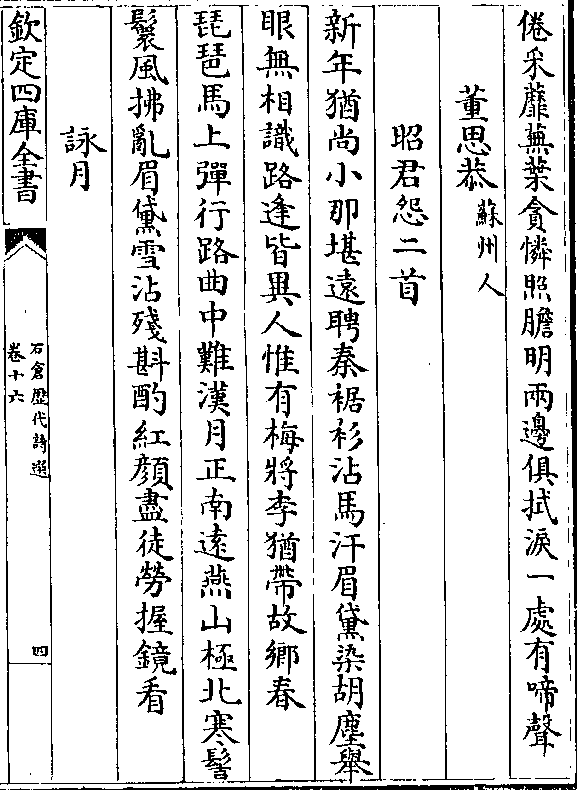 倦采蘼蕪葉貪憐照膽明兩邊俱拭淚一處有啼聲
董思恭蘇州人
昭君怨二首
新年猶尚小那堪遠聘秦裾衫沾馬汗眉黛染胡塵舉
眼無相識路逢皆異人惟有梅將李猶帶故鄉春
琵琶馬上彈行路曲中難漢月正南遠燕山極北寒髻
鬟風拂亂眉黛雪沾殘斟酌紅顏盡徒勞握鏡看
詠月
欽定四庫全書
石倉歷代詩選
卷十六
四